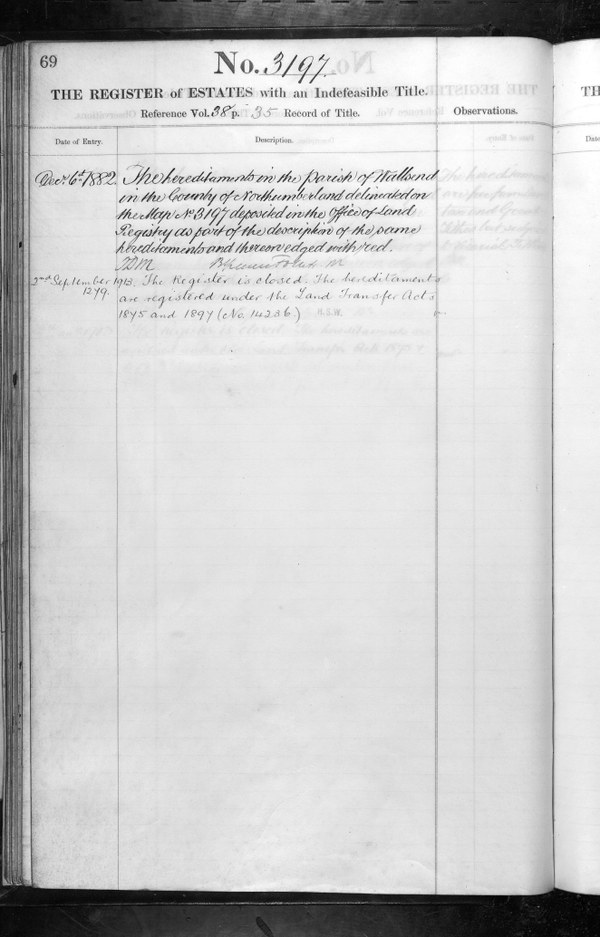 69
No. 3197.
THE REGISTER of ESTATES with an Indefeasible Title.
Reference Vol. 38 p. 35 Record of Title.
Observations.
Date of Entry.
Description.
Decr. 6th 1882.
The hereditaments in the Parish of Wallsend
in the County of Northumberland delineated on
the Map No 3197 deposited in the Office of Land
Registry as part of the description of the same
hereditaments and thereon edged with red.
2nd September 1913.
1279.
The Register is closed. The hereditaments
are registered under the Land Transfer Acts
1875 and 1897 (No. 14236.)
TH
Date